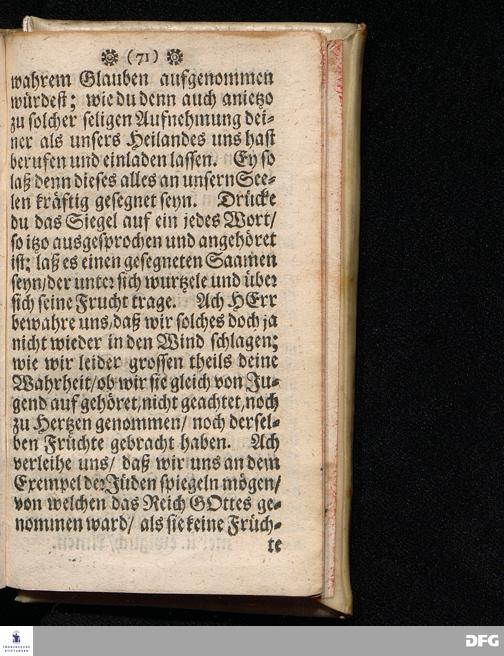 (71)
wahrem Glauben aufgenommen
würdest; wie du denn auch anietzo
zu solcher seligen Aufnehmung dei-
ner als unsers Heilandes uns hast
berufen und einladen lassen. Ey so
laß denn dieses alles an unsern See-
len kräftig gesegnet seyn. Drücke
du das Siegel auf ein jedes Wort/
so itzo ausgesprochen und angehöret
ist; laß es einen gesegneten Saamen
seyn/der unter sich wurtzele und über
sich seine Frucht trage. Ach HErr
bewahre uns/daß wir solches doch ja
nicht wieder in den Wind schlagen;
wie wir leider grossen theils deine
Wahrheit/ob wir sie gleich von Ju-
gend auf gehöret,nicht geachtet,noch
zu Hertzen genommen/ noch dersel-
ben Früchte gebracht haben. Ach
verleihe uns/ daß wir uns an dem
Exempel der Jüden spiegeln mögen/
von welchen das Reich GOttes ge-
nommen ward/ als sie keine Früch-
te
FRANCKESCHE
STIFTUNGEN
DFG